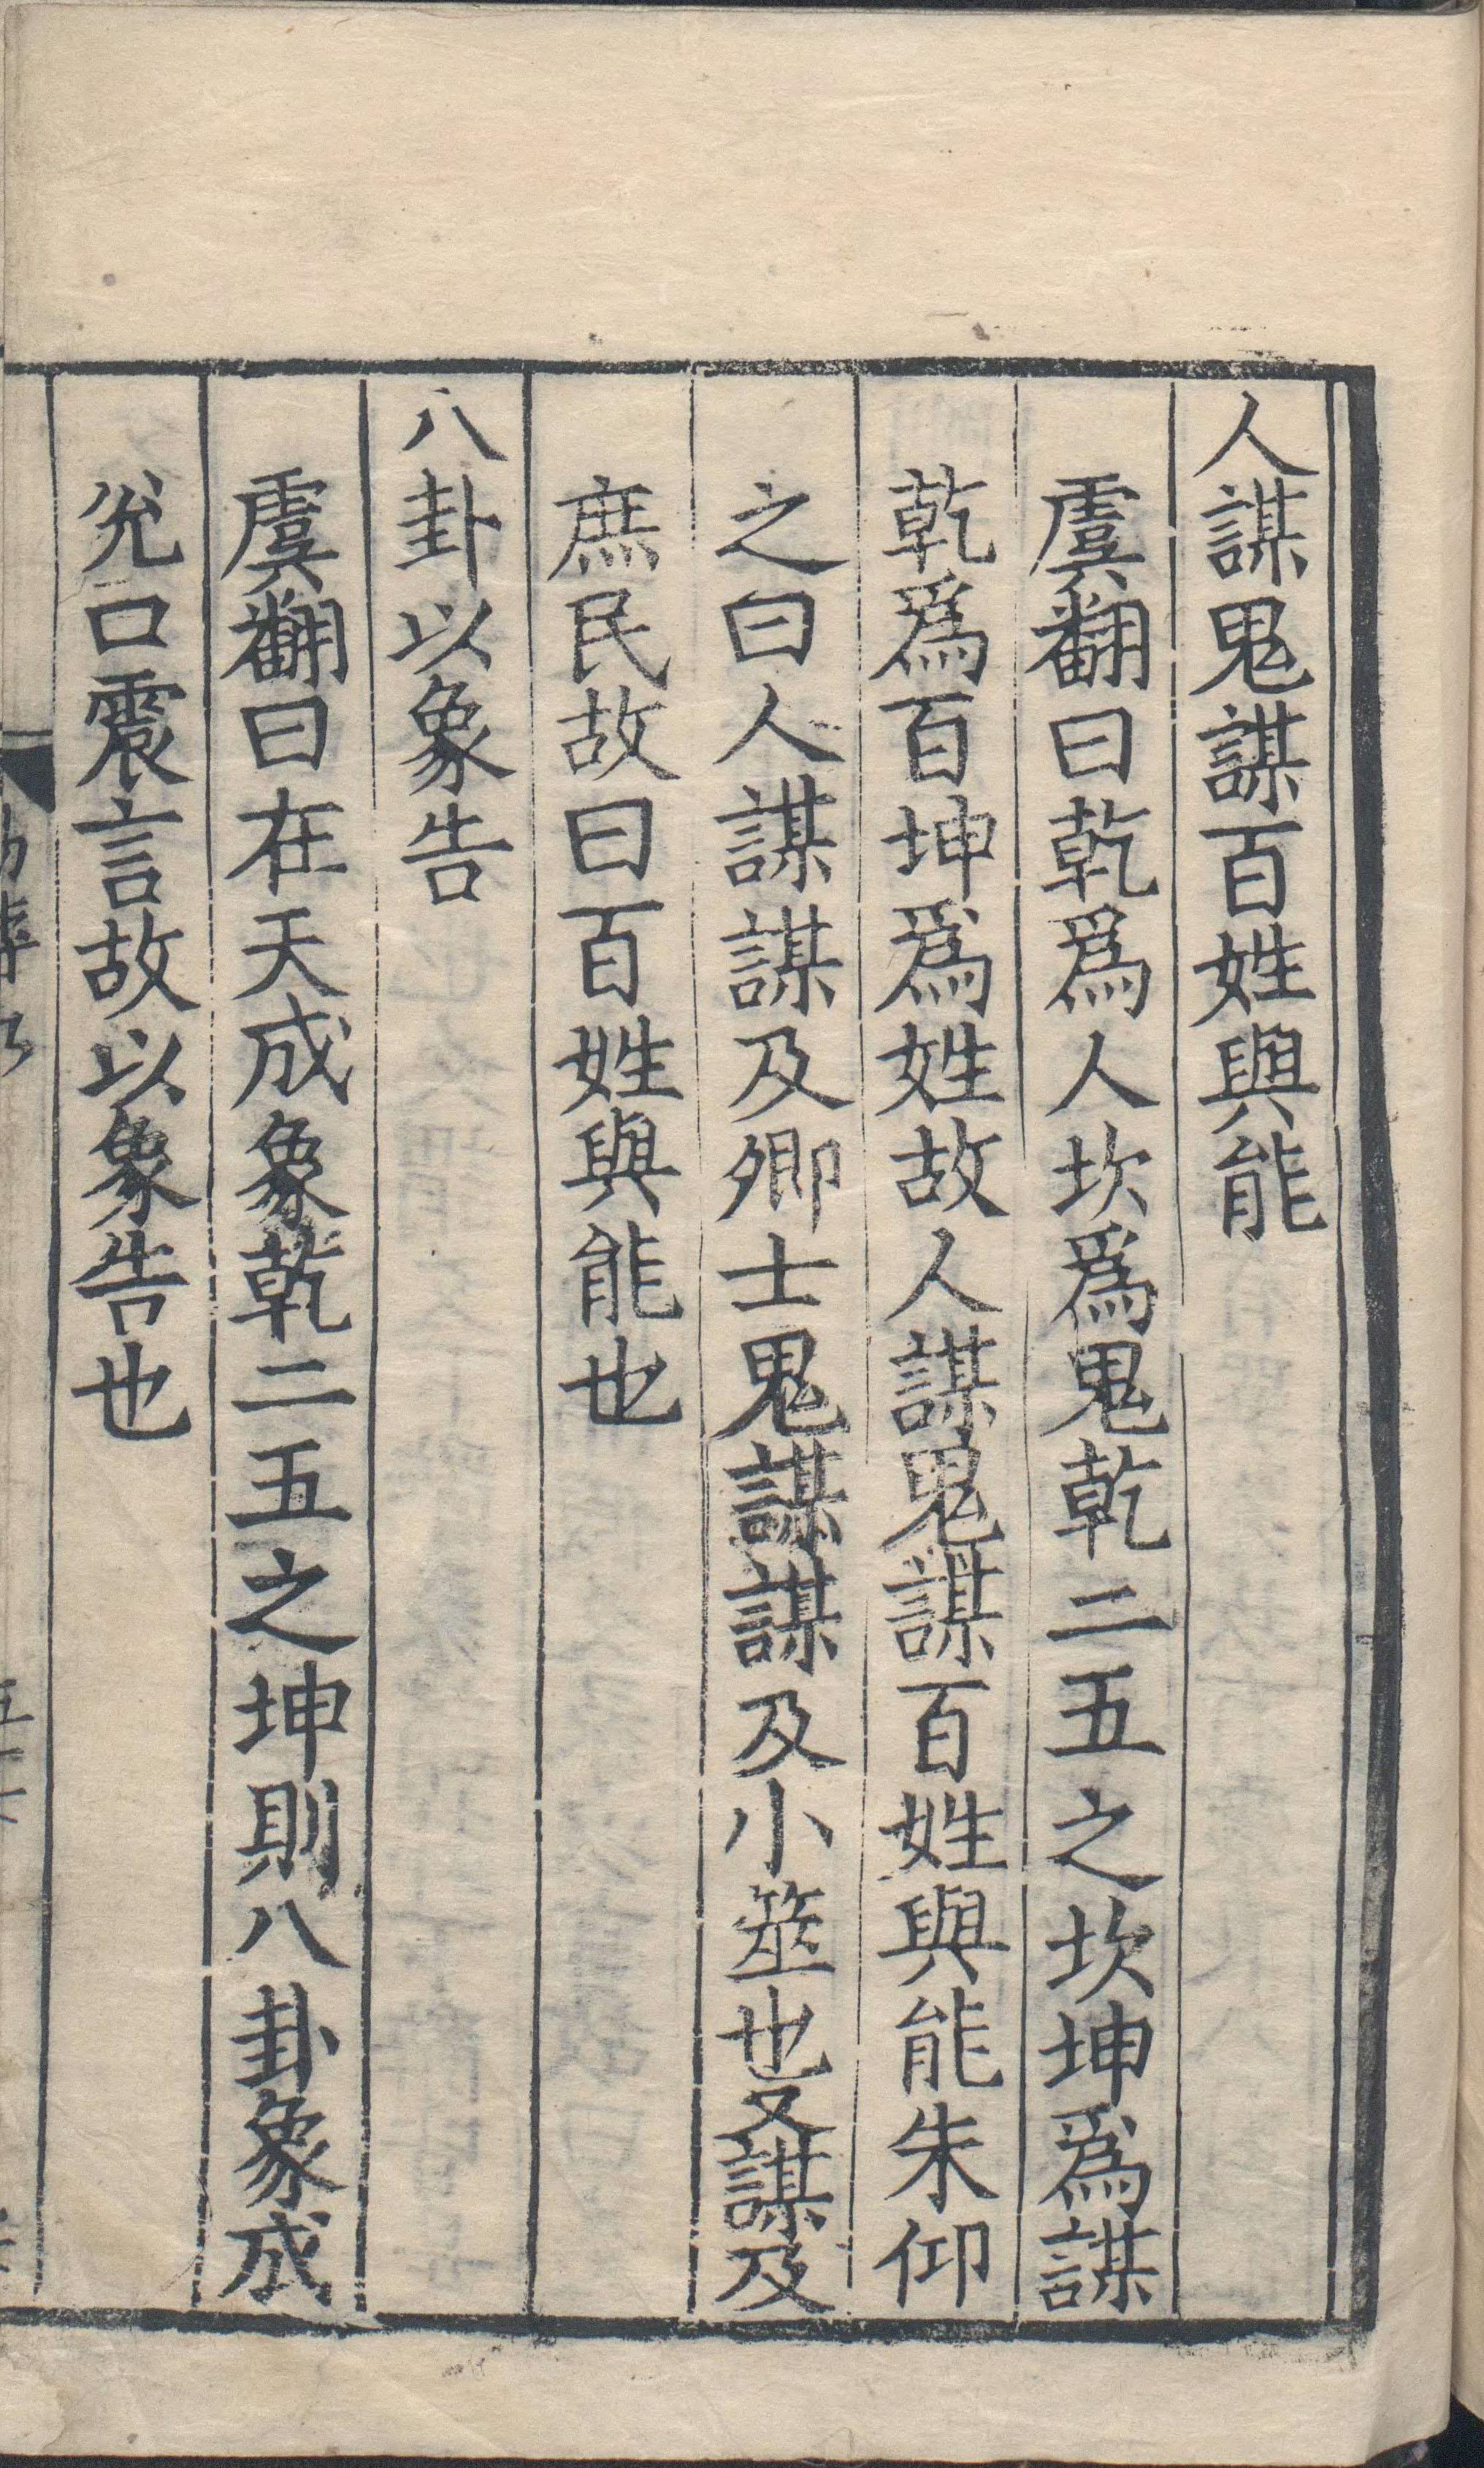 人謀鬼謀百姓與能
虞翻曰乾爲人坎爲鬼乾二五之坎坤爲謀
乾爲百坤爲姓故人謀鬼謀百姓與能朱仰
之曰人謀謀及卿士鬼謀謀及小筮也又謀及
庶民故曰百姓與能也
八卦以象告
虞翻曰在天成象乾二五之坤則八卦象成
兊口震言故以象告也